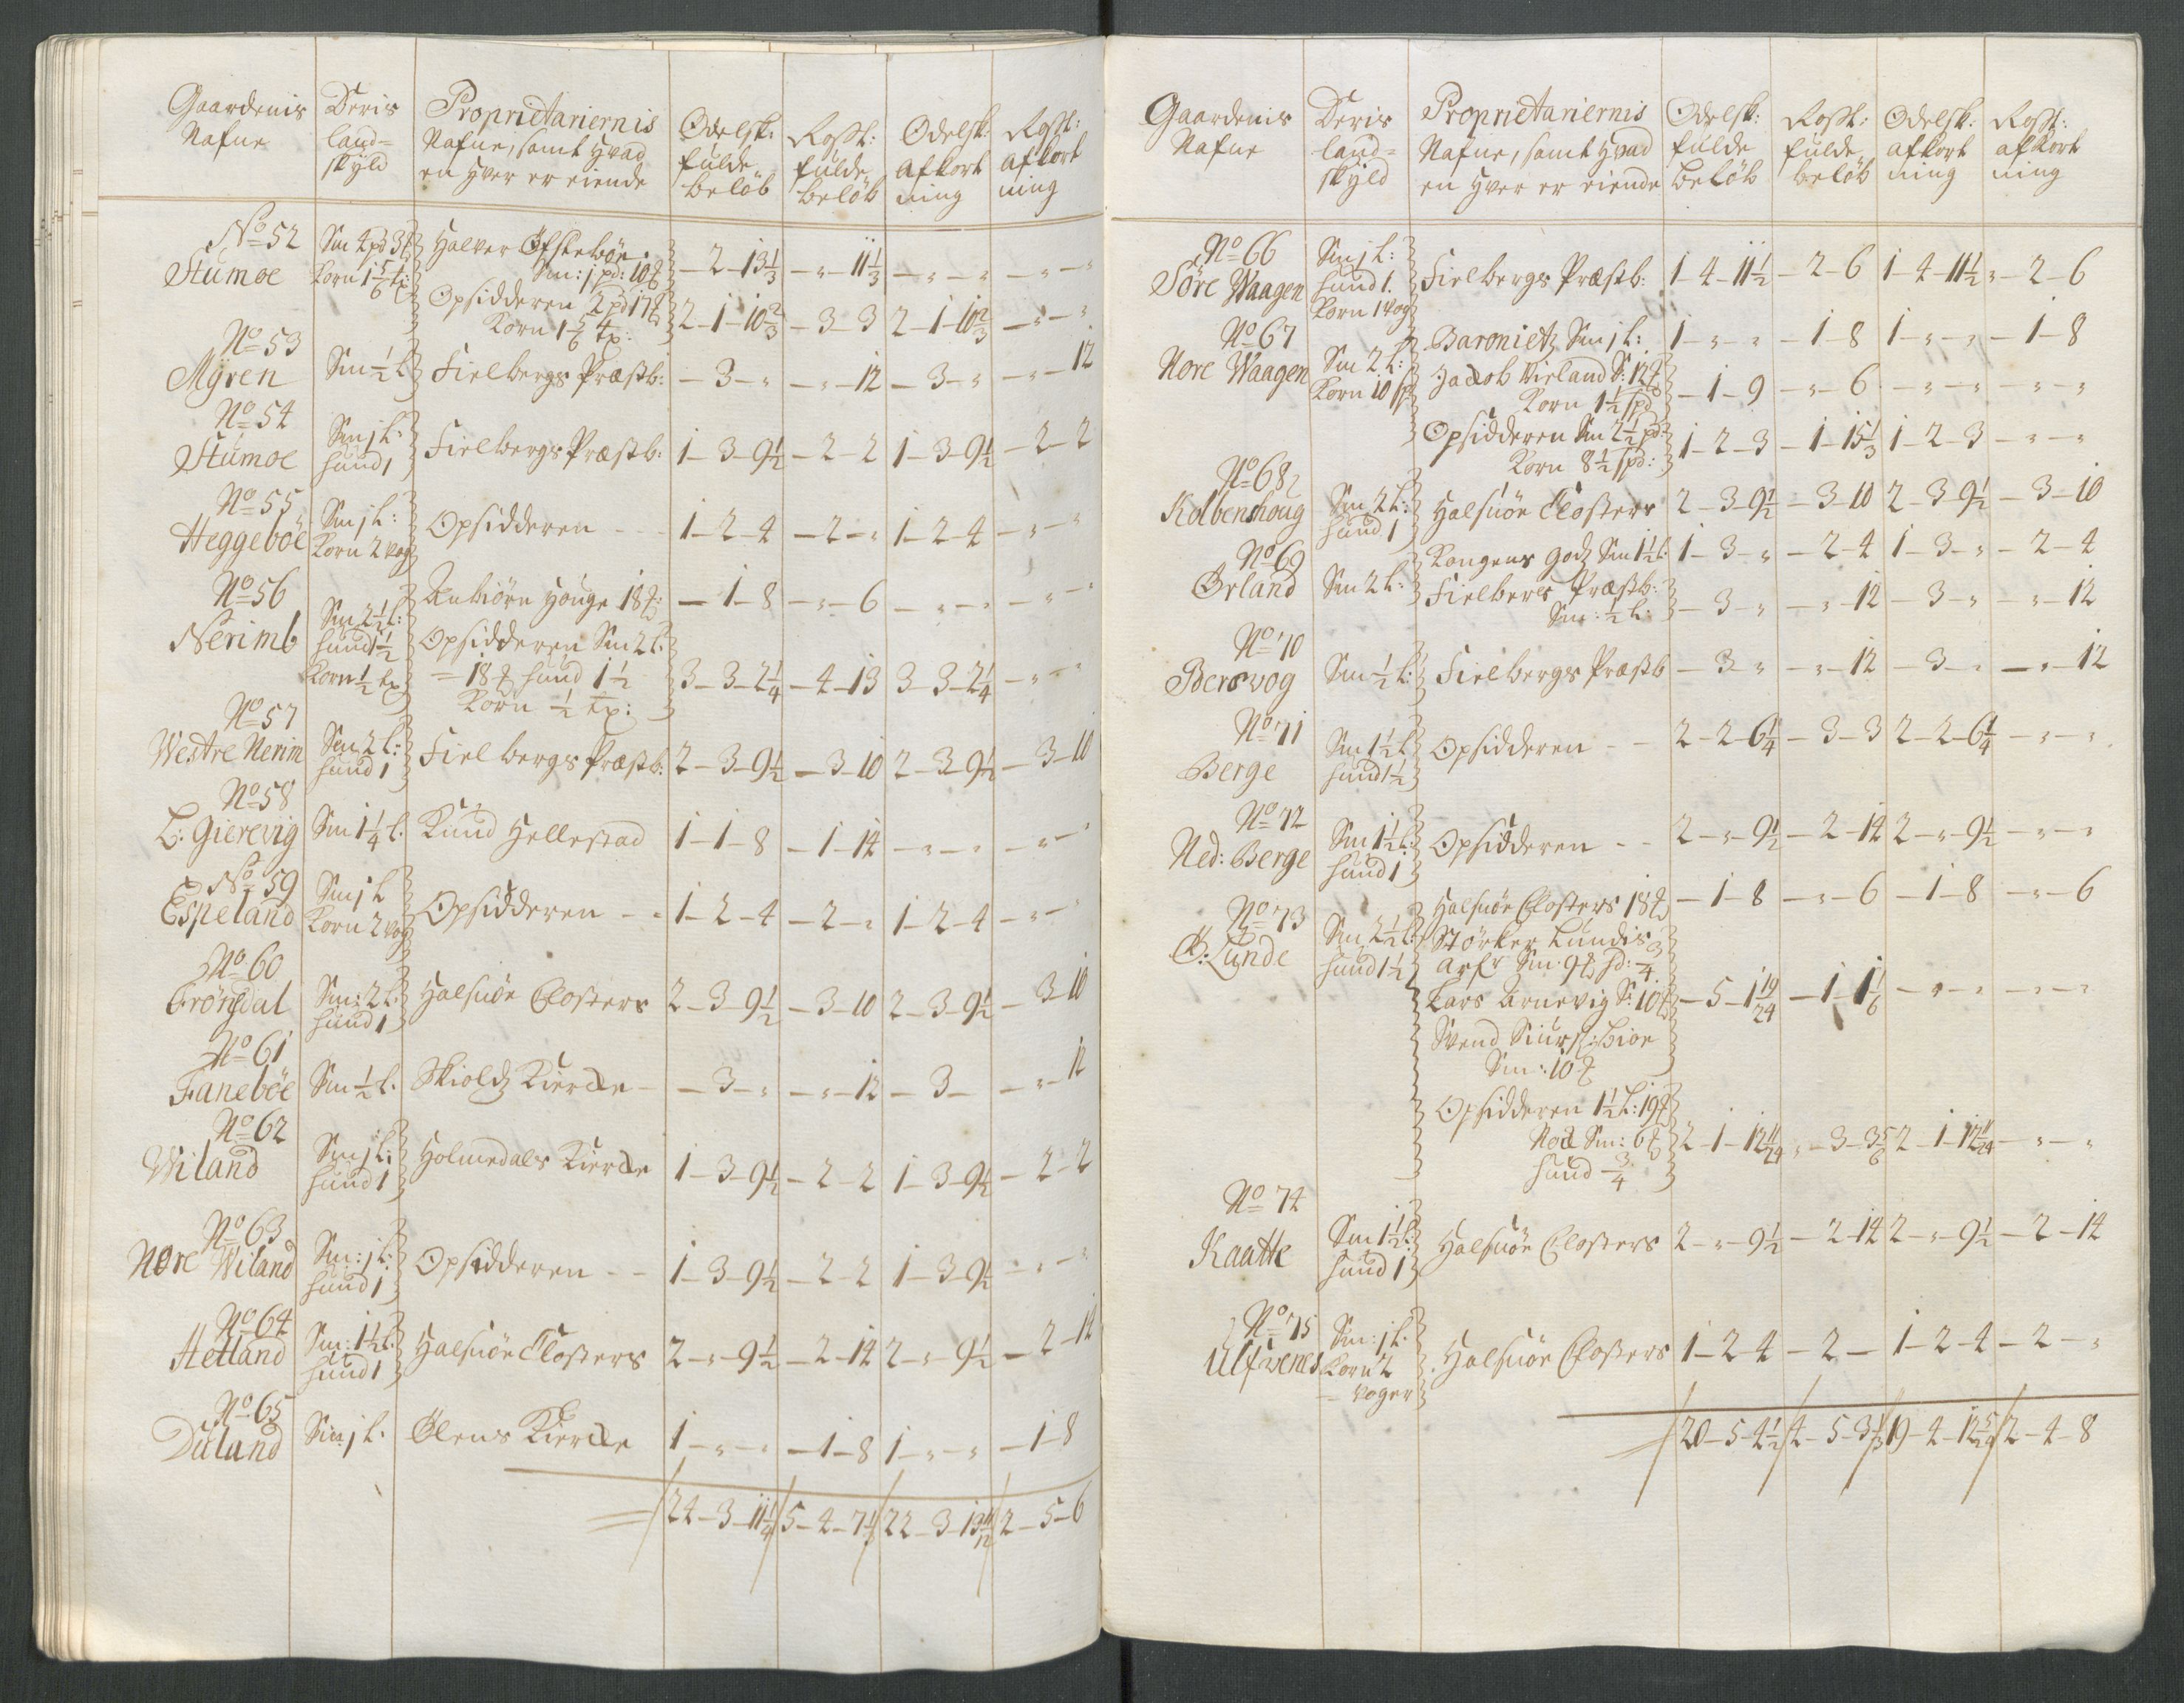 Gaardenis Nafne | Deris land= skÿld | Proprietariernis Nafne, samt hvad en hver er eiende | Odelsk: fulde beløb | Rosst: fulde beløb | Odelsk: afkort ning | Rosst: afkort ning
No 52 Stumoe | Sm 4 pd 3 Korn 1 5/6 | Halvor Øfstebøe Sm: 1 pd: 10 | - 2 - 13 1/3 | - " - 11 1/3 | - " - " | - " - "
Opsidderen 2 pd 17 Korn 1 5/6 tp: | 2 - 1 - 10 2/3 | - 3 - 3 | 2 - 1 - 10 2/3 | - " - "
No 53 Mÿren | Sm 1/2 L | Fielbergs Præstb: | - 3 - " | - " - 12 | - 3 - " | - " - 12
No 54 Stumoe | Sm 1 L: hund 1 | Fielbergs Præstb: | 1 - 3 - 9 1/2 | - 2 - 2 | 1 - 3 - 9 1/2 | - 2 - 2
No 55 Heggeböe | Sm 1 L: Korn 2 vog | Opsidderen - - | 1 - 2 - 4 | - 2 - " | 1 - 2 - 4 | - " - "
No 56 Nerimb | Sm 2 1/2 L: hund 1 1/2 Korn 1/2 tp | Anbiörn Houge 18 | - 1 - 8 | - " - 6 | - " - " | - " - "
Opsidderen Sm 2 L: 18 hund 1 1/2 Korn 1/2 tp: | 3 - 3 - 2 1/4 | - 4 - 13 | 3 - 3 - 2 1/4 | - " - "
No 57 Westre Nerim | Sm 2 L: hund 1 | Fielbergs Præstb: | 2 - 3 - 9 1/2 | - 3 - 10 | 2 - 3 - 9 1/2 | - 3 - 10
No 58 L: Gierevig | Sm 1 1/4 L. | Knud Hellestad | 1 - 1 - 8 | - 1 - 14 | - " - " | - " - "
No 59 Espeland | Sm 1 L Korn 2 vog | Opsidderen - - | 1 - 2 - 4 | - 2 - " | 1 - 2 - 4 | - " - "
No 60 Frönsdal | Sm: 2 L. hund 1 | Halsnöe Closters | 2 - 3 - 9 1/2 | - 3 - 10 | 2 - 3 - 9 1/2 | - 3 - 10
No 61 Faneböe | Sm 1/2 L. | Skiolds Kiercke - | - 3 - " | - " - 12 | - 3 - | - " - 12
No 62 Wiland | Sm 1 L: hund 1 | Holmedals Kiercke | 1 - 3 - 9 1/2 | - 2 - 2 | 1 - 3 - 9 1/2 | - 2 - 2
No 63 Nore Wiland | Sm: 1 L: hund 1 | Opsidderen - - | 1 - 3 - 9 1/2 | - 2 - 2 | 1 - 3 - 9 1/2 | - " - "
No 64 Hetland | Sm: 1 1/2 L. hund 1 | Halsnöe Closters | 2 - " - 9 1/2 | - 2 - 14 | 2 - " - 9 1/2 | - 2 - 14
No 65 Duland | Sm 1 L. | Ølens Kiercke | 1 - " - " | - 1 - 8 | 1 - " - " | - 1 - 8
24 - 3 - 11 1/4 | 5 - 4 - 7 1/3 | 22 - 3 - 13 11/12 | 2 - 5 - 6
Gaardenis Nafne | Deris land= skÿld | Proprietariernis Nafne, samt hvad en hver er eiende | Odelsk: fulde beløb | Rosst: fulde beløb | Odelsk: afkort ning | Rosst: afkort ning
No 66 Söre Waagen | Sm 1 L: hund 1. Korn 1 vog | Fielbergs Præstb: | 1 - 4 - 11 1/2 | - 2 - 6 | 1 - 4 - 11 1/2 | " - 2 - 6
No 67 Nore Waagen | Sm 2 L: Korn 10 sp | Baroniets Sm 1 L: | 1 - " - " | - 1 - 8 | 1 - " - " | - 1 - 8
Jacob Virland S: 12 Korn 1 1/2 spd | - 1 - 9 | - " - 6 | - " - " | - " - "
Opsidderen Sm 2 1/2 pd: Korn 8 1/2 spd: | 1 - 2 - 3 | - 1 - 15 1/3 | 1 - 2 - 3 | - " - "
No 68 Kolbenshoug | Sm 2 L: hund 1 | Halsnöe Closters | 2 - 3 - 9 1/2 | - 3 - 10 | 2 - 3 - 9 1/2 | - 3 - 10
No 69 Ørland | Sm 2 L: | Kongens gods Sm 1 1/2 L. | 1 - 3 - " | - 2 - 4 | 1 - 3 - " | - 2 - 4
Fielbers Præstb: Sm: 1/2 L: | - 3 - " | - " - 12 | - 3 - " | - " - 12
No 70 Bersvog | Sm 1/2 L: | Fielbergs Præstb | - 3 - " | - " - 12 | - 3 - " | - " - 12
No 71 Berge | Sm 1 1/2 L hund 1 1/2 | Opsidderen - - | 2 - 2 - 6 1/4 | - 3 - 3 | 2 - 2 - 6 1/4 | - " - "
No 72 Ned: Berge | Sm 1 1/2 L: hund 1 | Opsidderen - - | 2 - " - 9 1/2 | - 2 - 14 | 2 - " - 9 1/2 | - " - "
No 73 Ö: Lunde | Sm 2 1/2 L: hund 1 1/2 | Halsnöe Closters 18 | - 1 - 8 | - " - 6 | - 1 - 8 | - " - 6
Störker Lundis
Arfr Sm. 9 hd: 3/4
Lars Arnevig S: 10 | - 5 - 1 19/24 | - 1 - 1 1/6 | - " - " | - " - "
Svend Siurs:
Sm: 10
Opsidderen 1 1/2 L: 19
Nock Sm: 6 | 2 - 1 - 12 11/24 | " - 3 - 3 5/6 | 2 - 1 - 12 11/24 | - " - "
hund 3/4
No 74 Kaatte | Sm 1 1/2 L: hund 1 | Halsnöe Closters | 2 - " - 9 1/2 | - 2 - 14 | 2 - " - 9 1/2 | - 2 - 14
No 75 Ulfvenes | Sm: 1 L. Korn 2 voger | Halsnöe Closters | 1 - 2 - 4 | - 2 - | 1 - 2 - 4 | - 2 - "
20 - 5 - 4 1/2 | 4 - 5 - 3 1/3 | 19 - 4 - 12 5/24 | 2 - 4 - 8